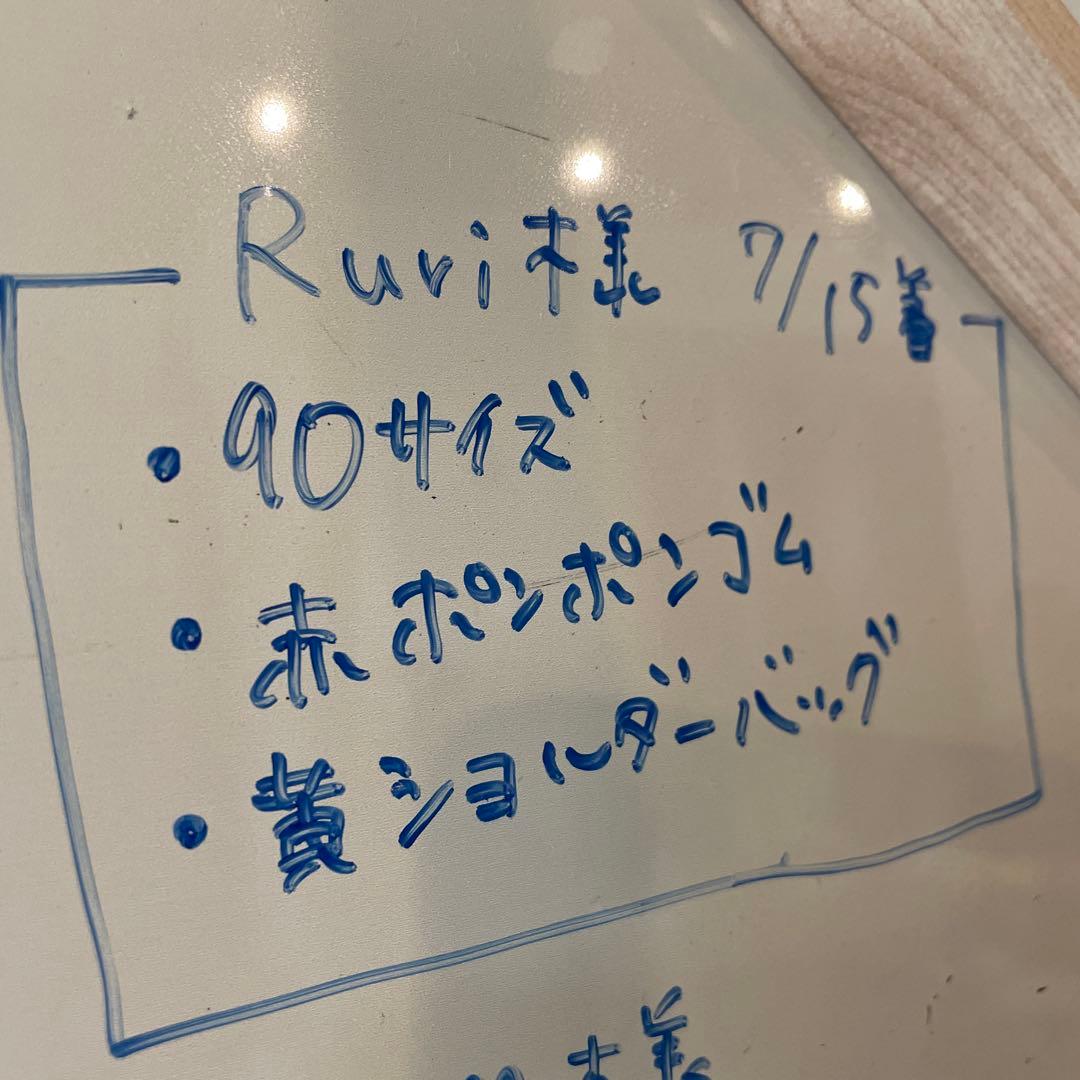 Ruri様 7/15着
・90サイズ
・赤ポンポンゴム
・黄ショルダーバッグ
様